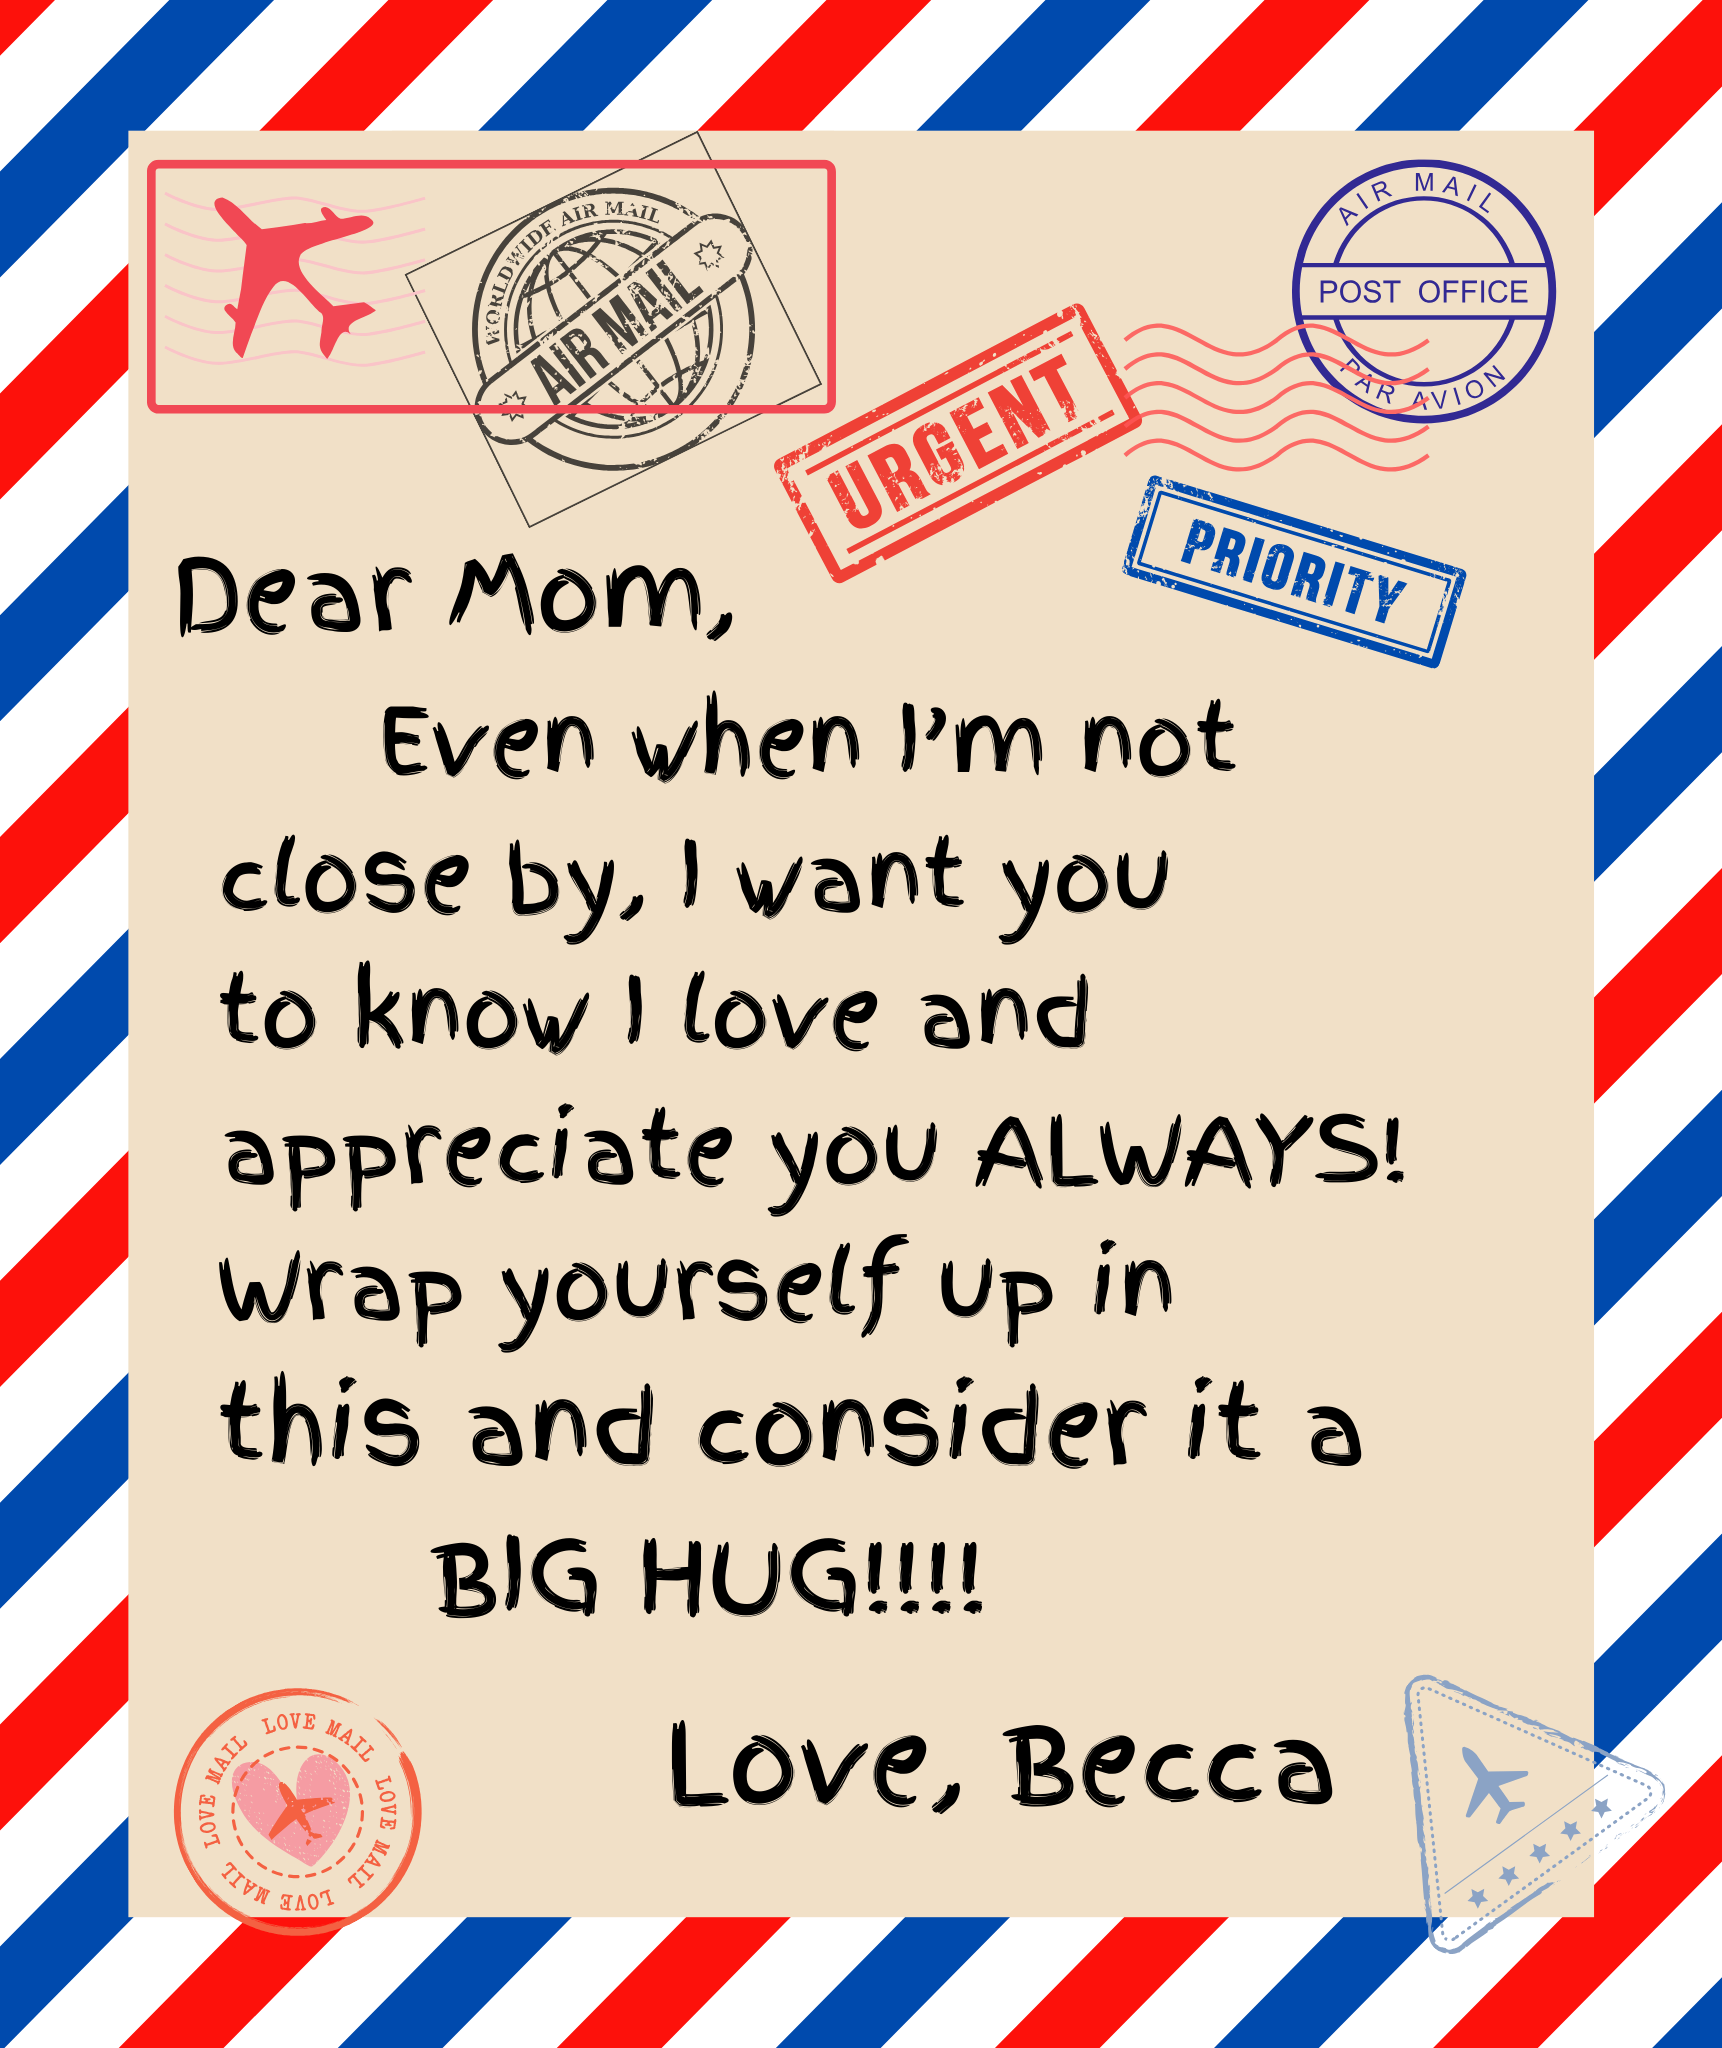 WORLDWIDE AIR MAIL
AIR MAIL
AIR MAIL
POST OFFICE
PAR AVION
URGENT
PRIORITY
Dear Mom,
Even when I'm not
close by, I want you
to know I love and
appreciate you ALWAYS!
Wrap yourself up in
this and consider it a
BIG HUG!!!!
Love, Becca
LOVE MAIL LOVE MAIL LOVE MAIL LOVE MAIL LOVE MAIL